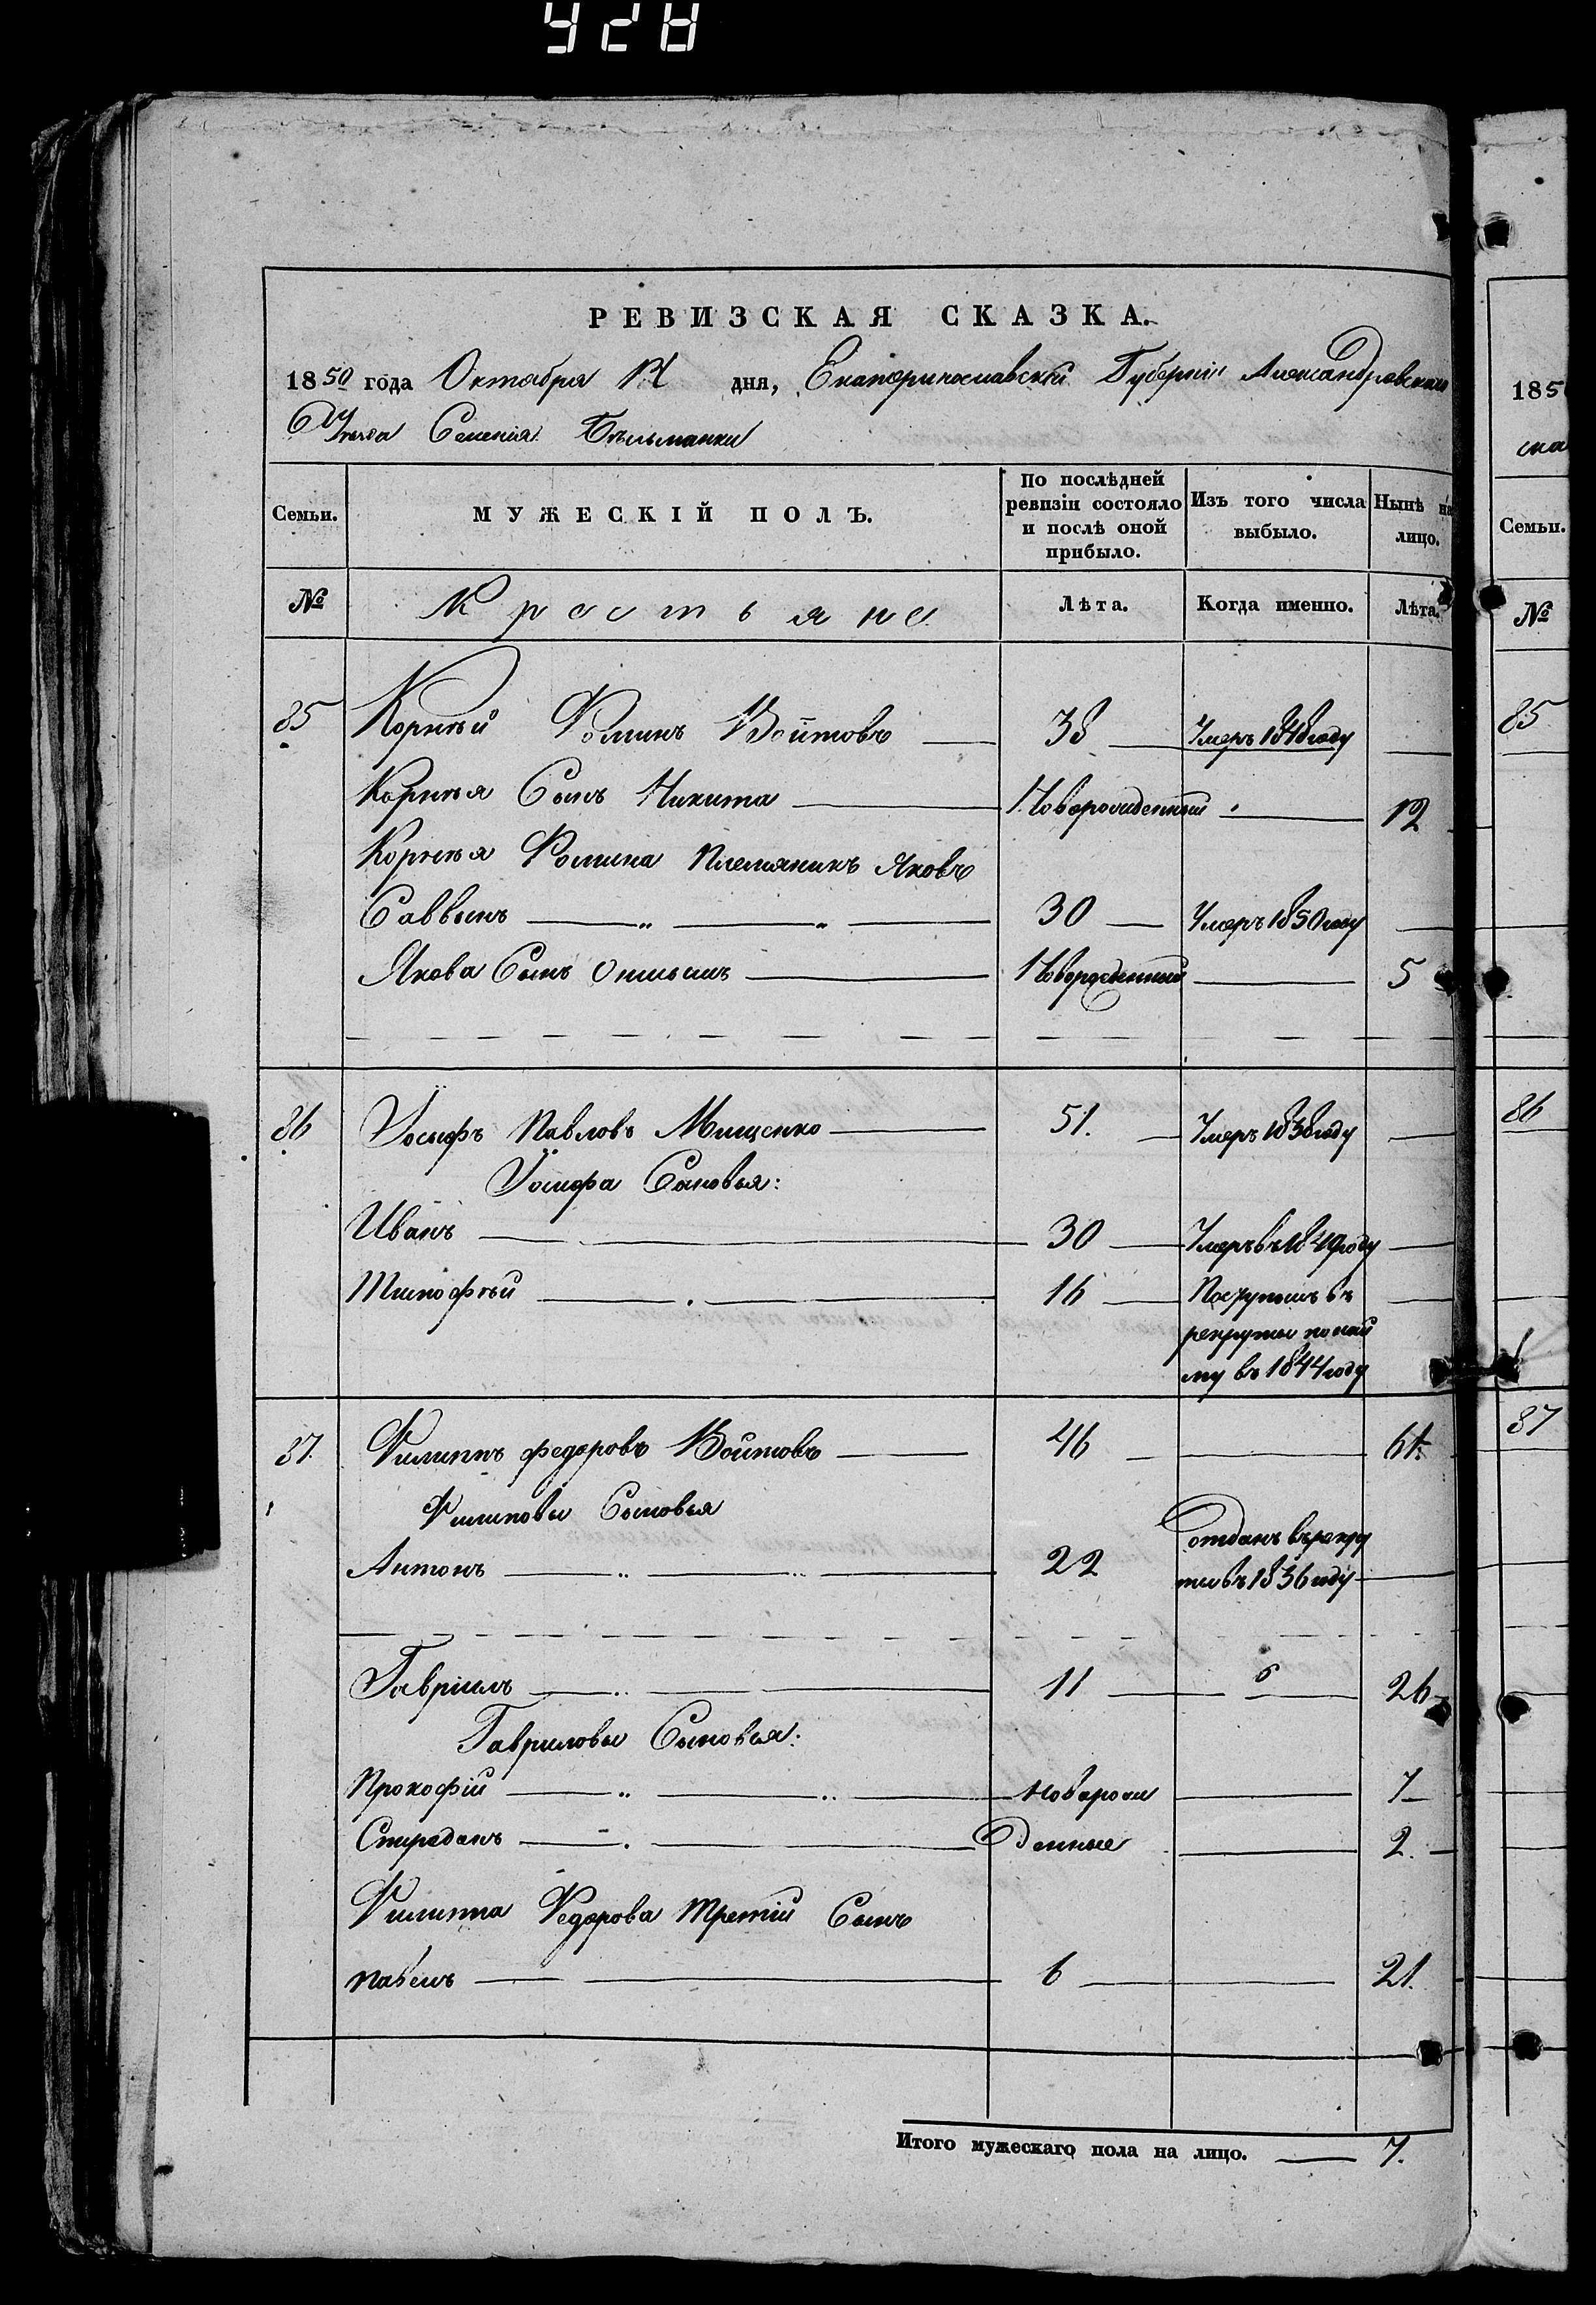 928
РЕВИЗСКАЯ СКАЗКА.
1850 года Октября дня, Екатеринославской Губернии Александровскаго
Уезда Селения Бѣльманки
Семьи.
МУЖЕСКІЙ ПОЛЪ.
По послѣдней ревизіи состояло и послѣ оной прибыло.
Изъ того числа выбыло.
Нынѣ на лицо.
№
Крестьяне
Лѣта.
Когда именно.
Лѣта.
85 Корнѣй Фоминъ Войтовъ 38 Умеръ 1848 году
Корнѣя Сынъ Никита Новорожденный 12
Корнѣя Фомина Племяникъ Яковъ
Саввинъ 30 Умеръ 1850 году
Якова Сынъ Новорожденный 5
86 Іосифъ Павловъ Мищенко 51. Умеръ 1838 году
Іосифа Сыновья:
Иванъ 30 Умеръ въ 1849 году
Тимофѣй 16 Поступилъ въ
рекруты по най
му въ 1844 году
87. Филиппъ Федоровъ Войтовъ 46 61.
Филиповы Сыновья
Антонъ 22 отданъ въ рекру
ты въ 1836 году
Гавріилъ 11 26
Гавриловы Сыновья:
Прокофій Новорож 7
Спиридонъ денные 2.
Филиппа Федорова третій Сынъ
павелъ 6 21.
Итого мужескаго пола на лицо. 7.
185
Семьи.
№
85
86
87